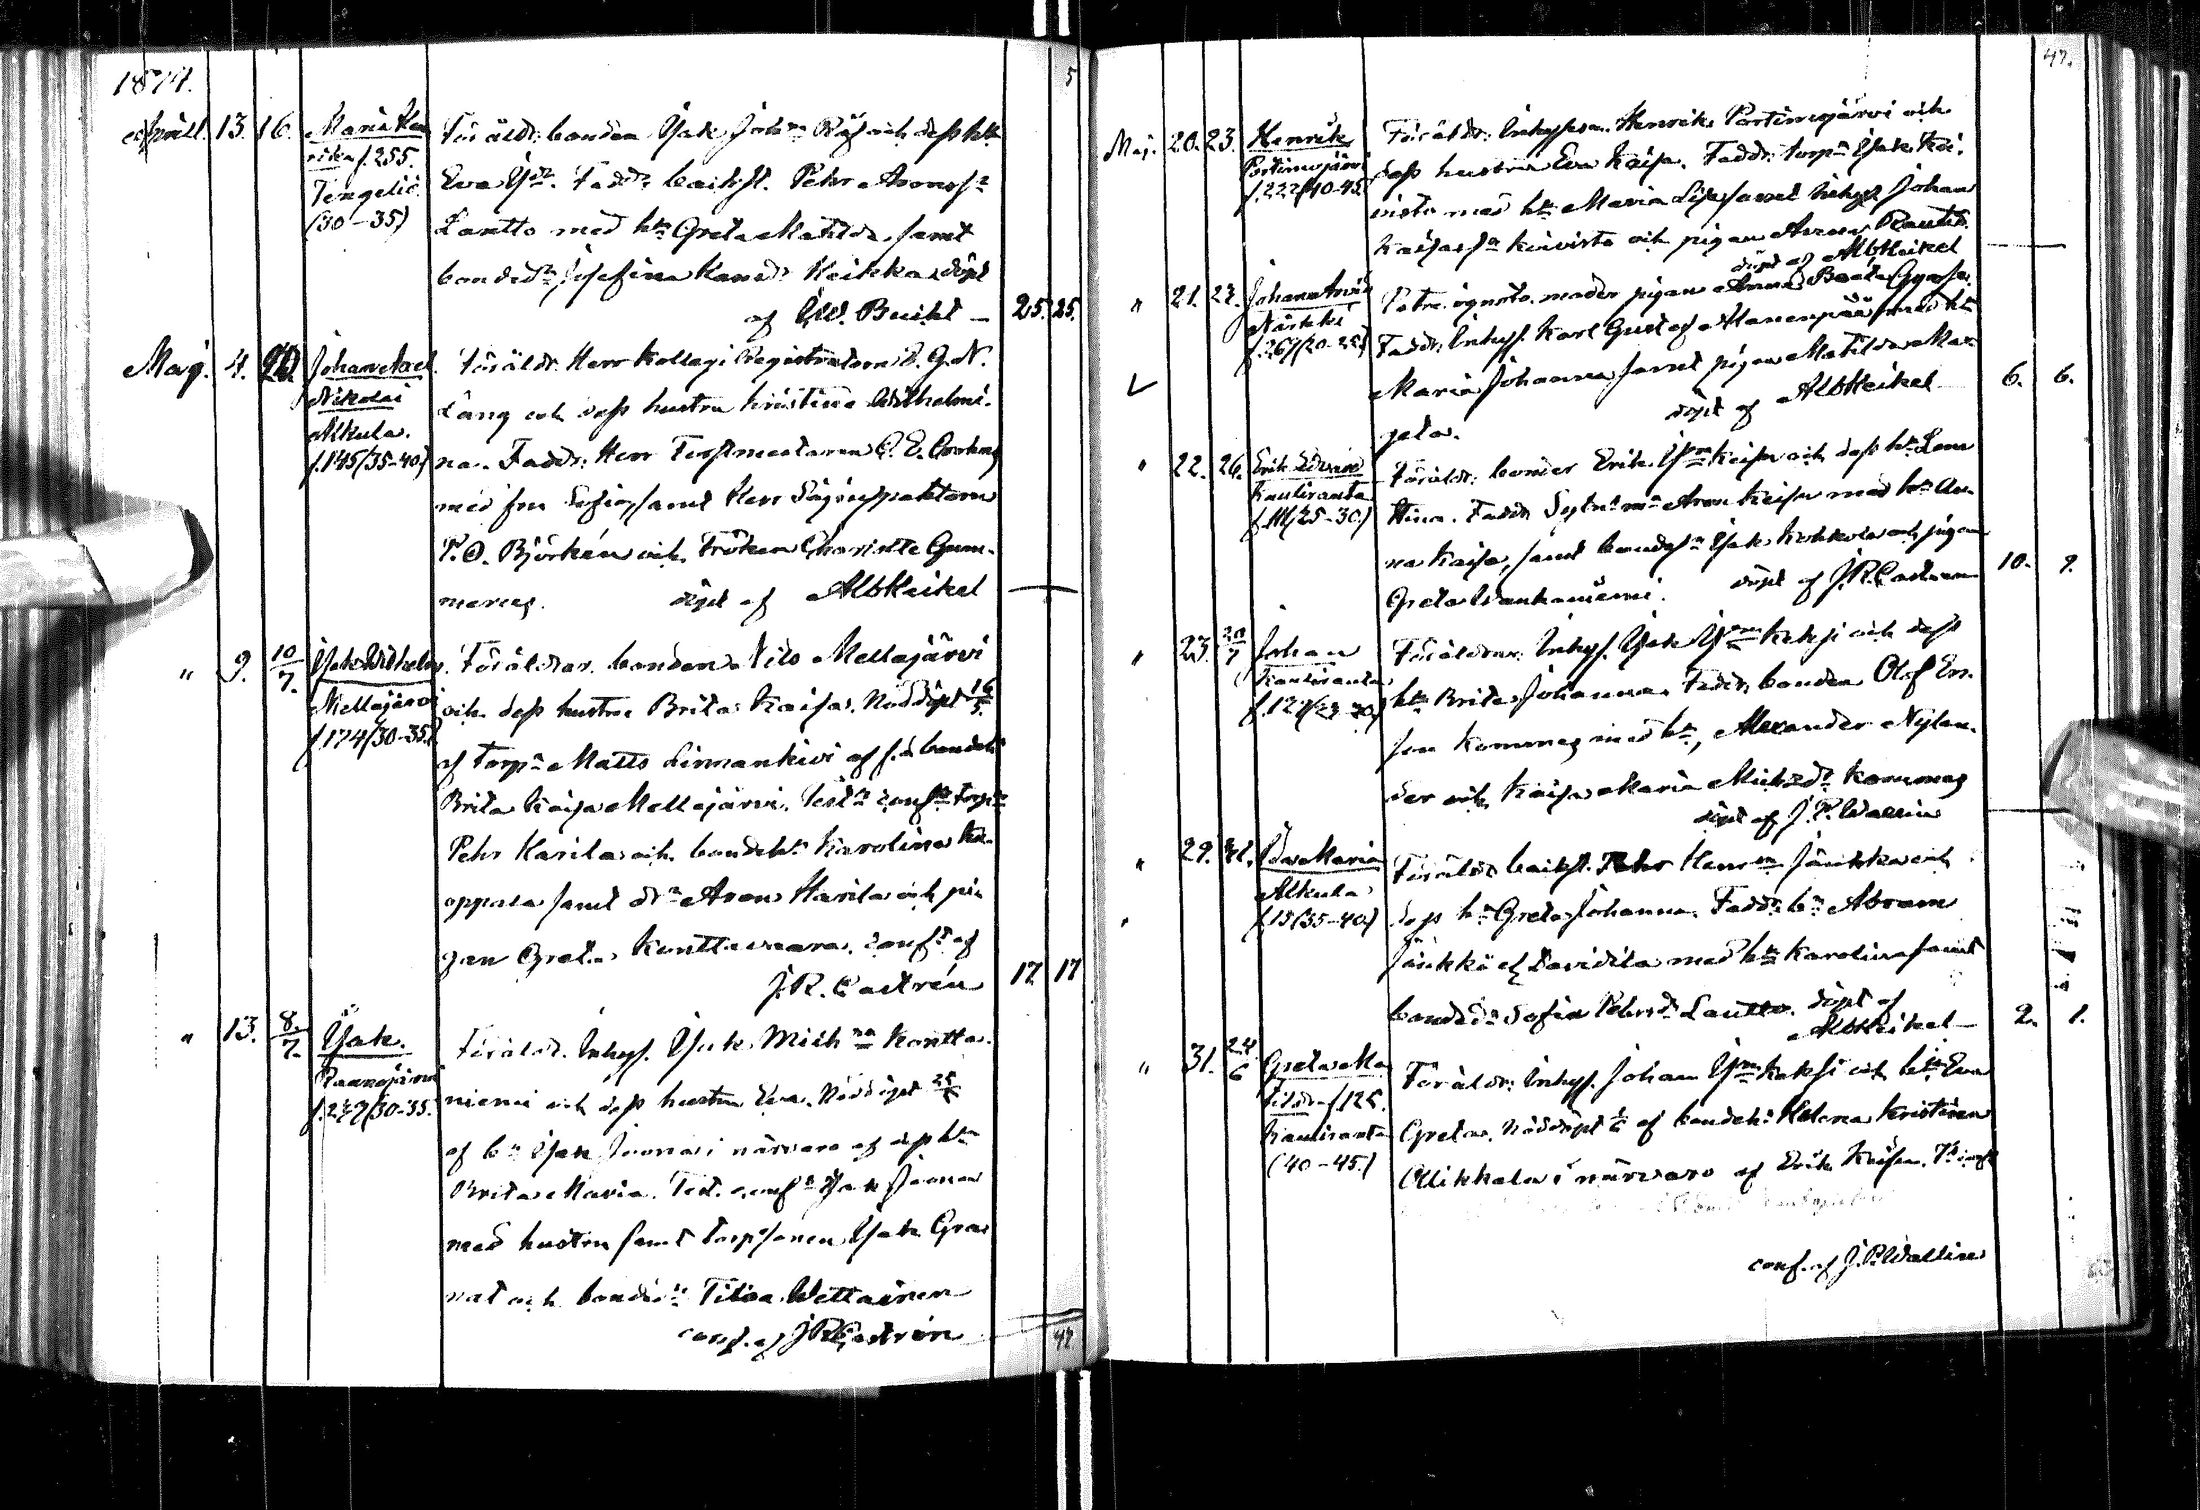 1879.
5
April. 13. 16. Maria Hen
rika f. 255.
Tengeliö
(30-35)
Föräldr: bonden Isak Johns
och dess hu
Eva Isdr. Faddr: backst. Pehr Aronss
Lantto med hu Greta Matilda, samt
bondedr Josefina Keikka döpt
af Buckt – 25. 25.
Maj. 4. 20. Johan Axel
Nikolai
Alkula.
f. 145 (35-40)
Föräldr: Herr Kollegi Registratorn
Lång och dess hustru Kristina Wilhelmi-
na. Faddr: Herr Forstmästaren C. E.
med fru Sofia, samt Herr
P. O. Björkén och Fröken Charlotte Gum-
merus. döpt af Alb Heikel
" 9. 10/7. Isak Wilhelm.
Mellajärvi
f. 174 (30-35.)
Föräldrar. bonden Nils Mellajärvi
och dess hustru Brita Kaisa. Nöddöpt 16/5.
af torpn Matts Linnankivi af f.d. bondeh
Brita Kaisa Mellajärvi. Test conf
Pehr Karila och bondehu Karolina
samt dr Aron Harila och pi-
gan Greta Konttavaara. conf. af
J. R. Castrén 17 17
" 13. 8/7. Isak.
Raanujärvi
f. 247 (30-35.
Föräldr. Inhys. Isak Michns Kontta-
niemi och dess hustru Eva. Nöddöpt 25/5
af bn Isak Juonas i närvaro af dess hu
Brita Maria. Test. conf Isak Juonas
med hustru samt torpsonen Isak Gra-
nat och bondedr Tilda Wettainen
conf. af J R Castrén
47
47.
Maj. 20. 23. Henrik
Portimojärvi
f. 222 (40-45)
Föräldr: Inhyses. Henrik Portimojärvi och
dess hustru Eva Kaisa. Faddr: torpn Isak Koi-
visto med hu Maria Lisa samt inhys Johan
Kaisas sn Koivisto och pigan Anna Rautio.
döpt af Alb Heikel
" 21. 27. Johan Arvid
Närkki
f. 267 (20-25)
Patre ignoto. moder pigan Anna Beata
Faddr: Inhys. Karl Gustaf Alanenpää med hu
Maria Johanna, samt pigan Matilda Mar-
geta. döpt af Alb Heikel 6. 6.
" 22. 26. Erik Edvard
Kauliranta
f. 111 (25-30)
Föräldr: bonden Erik Ism Keisu och dess hu Lena
Stina. Faddr Sytn mn Aron Keisu med hu An-
na Kaisa, samt bondesn Isak Kokkola och pigan
Greta Wankaniemi. döpt af J. R. Castrén 10. 9.
" 23. 20/7 Johan
Kauliranta
Föräldrar: Inhys. Isak Isns Keksi och dess
hu Brita Johanna. Faddr: bonden Olof Ers-
son Kommes med hu, Alexander Nylan-
der och Kaisa Maria Michsdr Kommes
döpt af J. P. Wallin
" 29. 31. Ida Maria
Alkula
f. 15 (35-40)
Föräldr backst. Pehr Henrsn Jänkkä och
dess hu Greta Johanna. Faddr: bn Abram
Jänkkä el. Davidila med hu Karolina samt
bondedr Sofia Pehrsdr Lantto. döpt af
Alb Heikel 2. 1.
" 31. 24/6 Greta Ma
tilda f. 125.
Kauliranta
(40-45.)
Föräldr: Inhys. Johan Ism Keksi och hu Eva
Greta. Nöddöpt 1/6 af bondeh: Helena Kristina
Ollikkala i närvaro af Erik Keisu.
conf. af J. P. Wallin